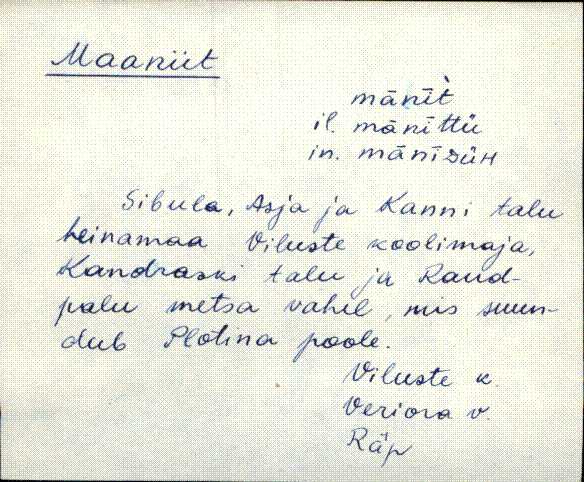 Maaniit
mānī̀t
il. mānīttü
in. mānīsüH
Sibula, Asja ja Kanni talu
heinamaa Viluste koolimaja,
Kandraski talu ja Raud-
palu metsa vahel, mis suun-
dub Plotina poole.
Viluste k.
Veriora v.
Räp